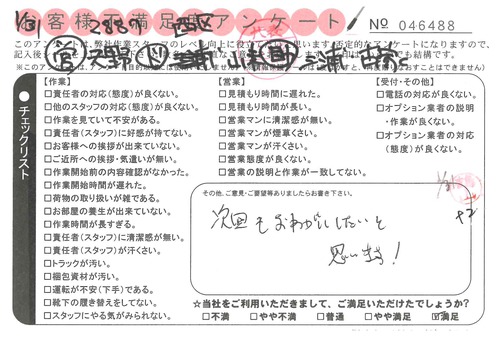 お客様満足度アンケート
No 046488
このアンケートは、弊社作業スタッフのレベル向上に役立て
否定的なアンケートになりますので、
記入後
でも結構です。
【作業】
□責任者の対応(態度)が良くない。
□他のスタッフの対応(態度)が良くない。
□作業を見ていて不安がある。
□責任者(スタッフ)に好感が持てない。
□お客様への挨拶が出来ていない。
□ご近所への挨拶・気遣いが無い。
□作業開始前の内容確認がなかった。
□作業開始時間が遅れた。
□荷物の取り扱いが雑である。
□お部屋の養生が出来ていない。
□作業時間が長すぎる。
□責任者(スタッフ)に清潔感が無い。
□責任者(スタッフ)が汗くさい。
□トラックが汚い。
□梱包資材が汚い。
□運転が不安(下手)である。
□靴下の履き替えをしてない。
□スタッフにやる気がみられない。
【営業】
□見積もり時間に遅れた。
□見積もり時間が長い。
□営業マンに清潔感が無い。
□営業マンが煙草くさい。
□営業マンが汗くさい。
□営業態度が良くない。
□営業の説明と作業が一致してない。
【受付・その他】
□電話の対応が良くない。
□オプション業者の説明
・作業が良くない。
□オプション業者の対応
(態度)が良くない。
チェックリスト
その他、ご意見・ご要望等ありましたらお書き下さい。
次回もおねがいしたいと
思います!
☆当社をご利用いただきまして、ご満足いただけたでしょうか?
□不満 □やや不満 □普通 □やや満足 ☑満足